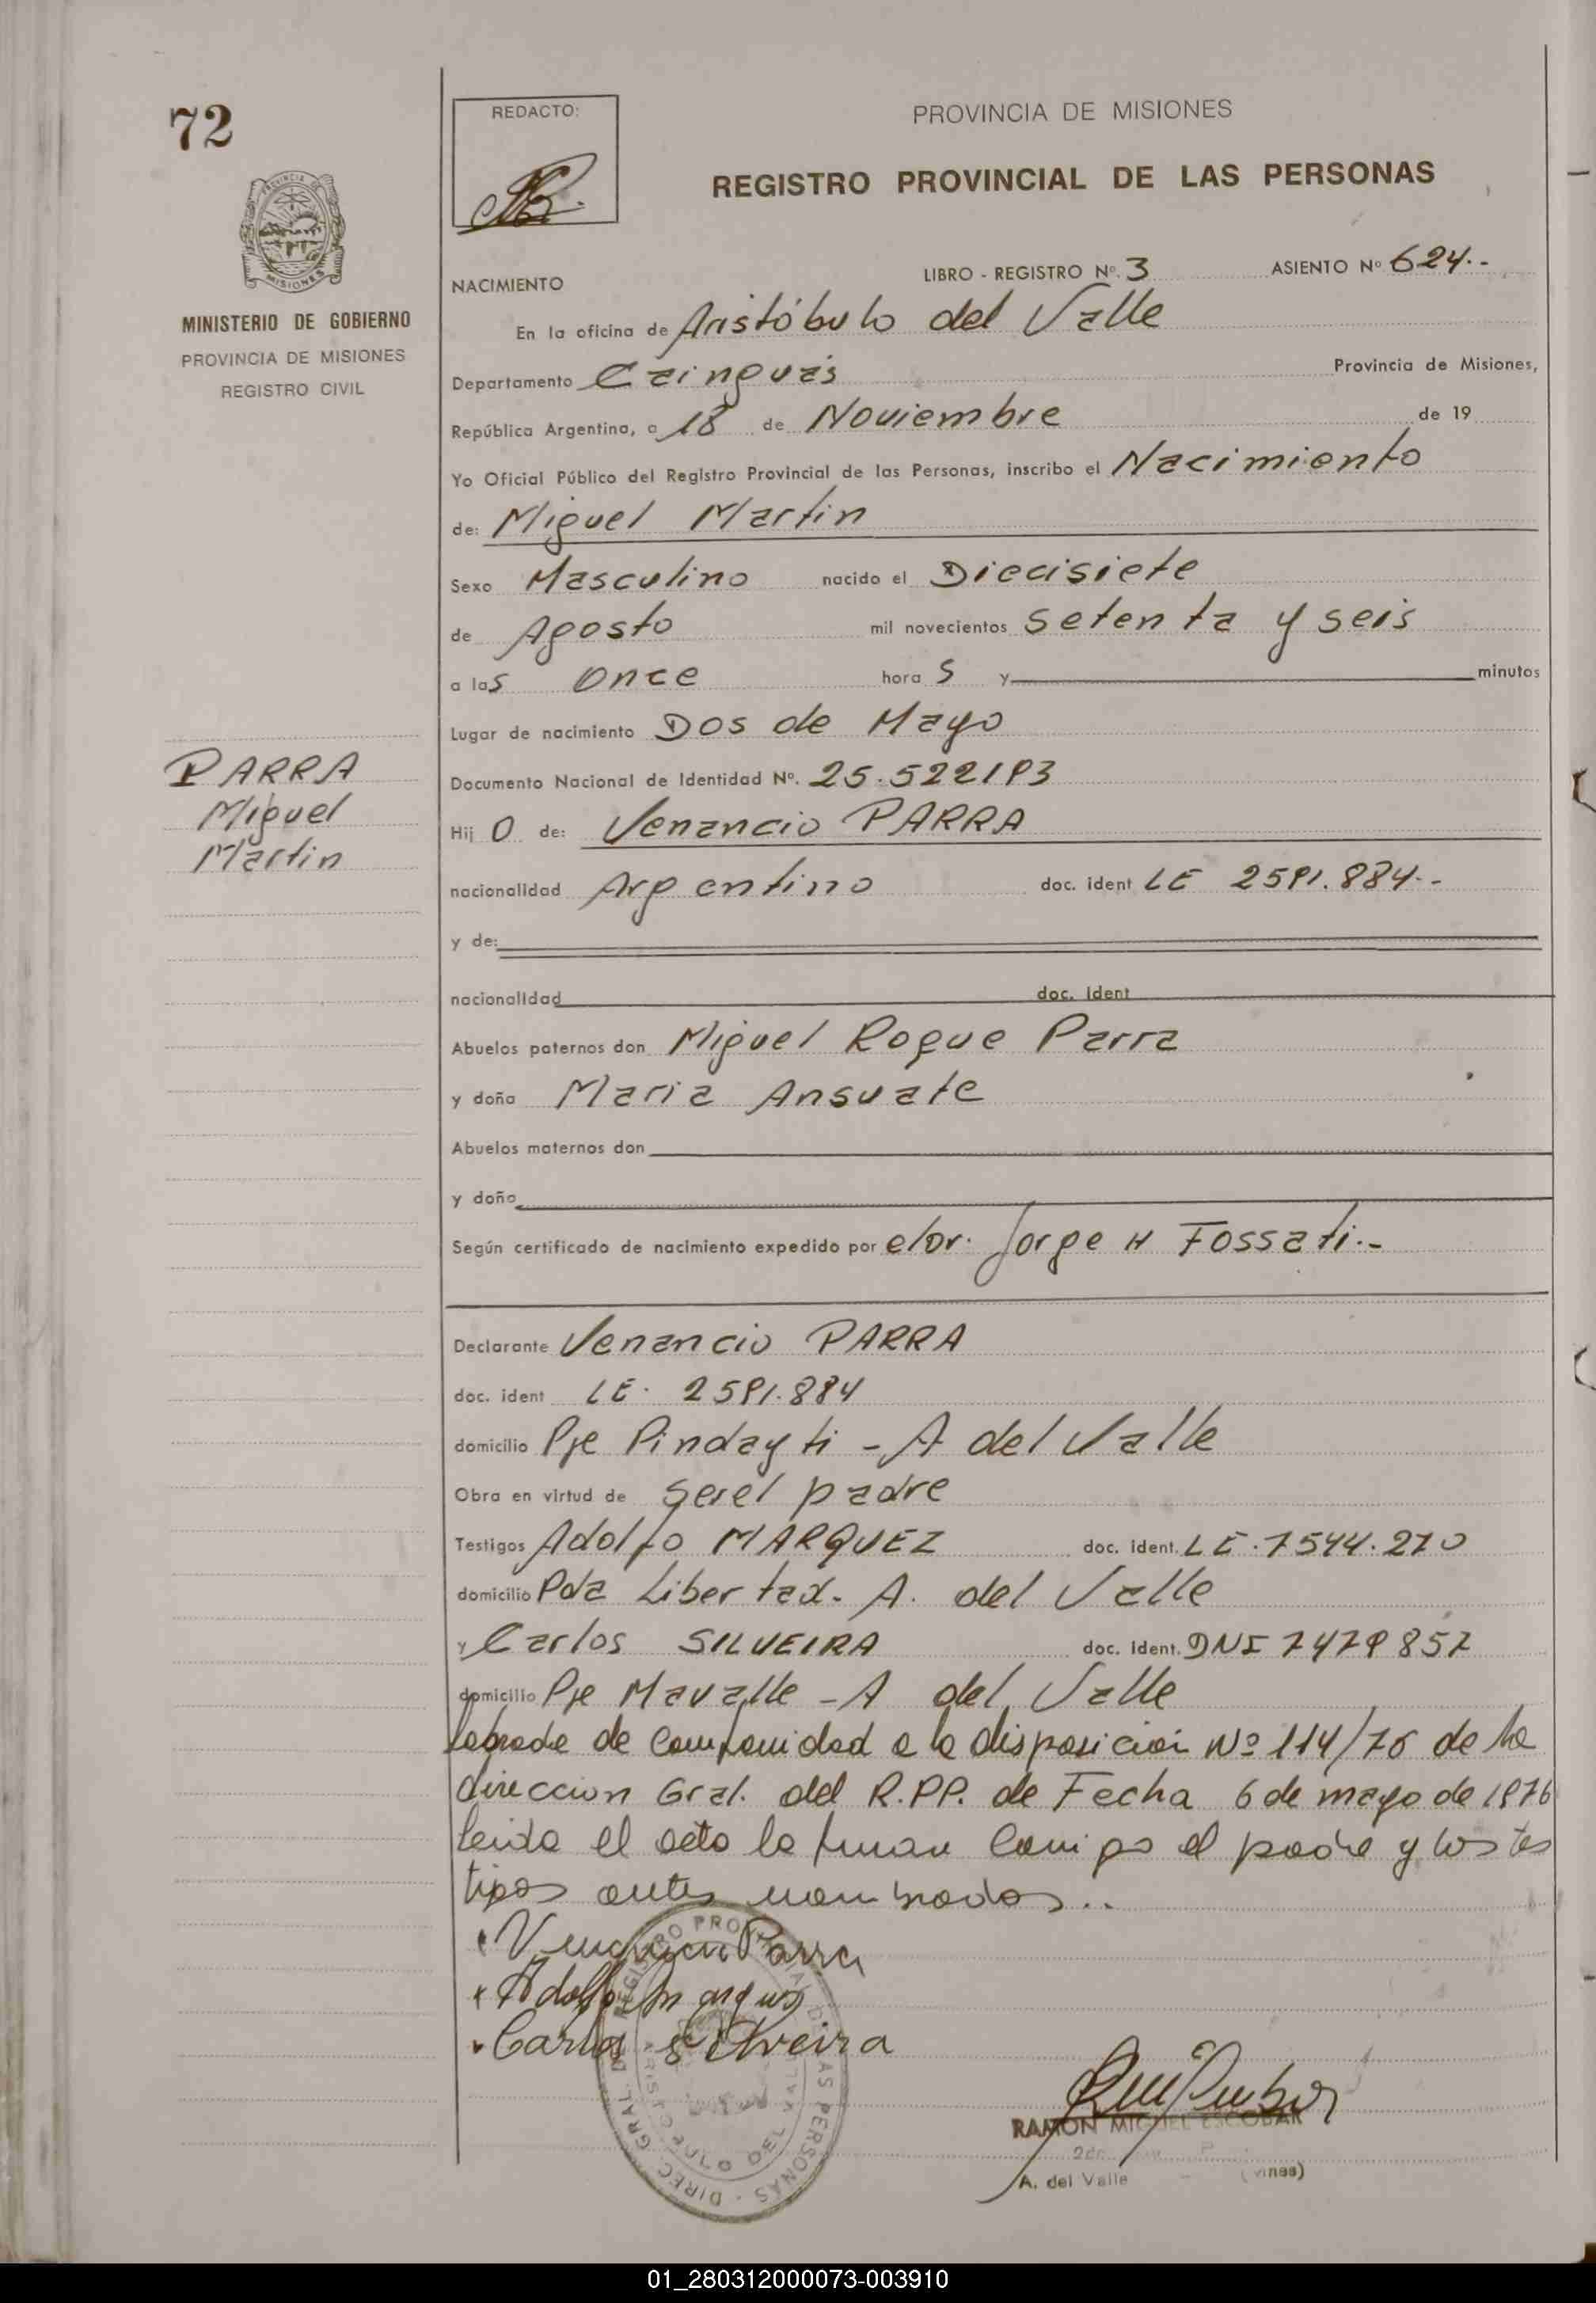 72
REDACTO:
PROVINCIA DE MISIONES
REGISTRO PROVINCIAL DE LAS PERSONAS
PROVINCIA DE
MISIONES
MINISTERIO DE GOBIERNO
PROVINCIA DE MISIONES
REGISTRO CIVIL
NACIMIENTO
LIBRO - REGISTRO Nº. 3 ASIENTO Nº 624.-
En la oficina de Aristóbulo del Valle
Departamento Cainguás Provincia de Misiones,
República Argentina, a 18 de Noviembre de 19
Yo Oficial Público del Registro Provincial de las Personas, inscribo el Nacimiento
de: Miguel Martin
Sexo Masculino nacido el Diecisiete
de Agosto mil novecientos setenta y seis
a las once horas y minutos
Lugar de nacimiento Dos de Mayo
PARRA
Miguel
Martin
Documento Nacional de Identidad Nº. 25.522193
Hijo de: Venancio PARRA
nacionalidad Argentino doc. ident LE 2591.884.-
y de:
nacionalidad doc. ident
Abuelos paternos don Miguel Roque Parra
y doña Maria Ansuate
Abuelos maternos don
y doña
Según certificado de nacimiento expedido por el Dr. Jorge H Fossati.-
Declarante Venancio PARRA
doc. ident LE. 2591.884
domicilio Pje Pindayti - A del Valle
Obra en virtud de ser el padre
Testigos Adolfo MARQUEZ doc. ident. LE. 7544.270
domicilio Pda Libertad. A. del Valle
y Carlos SILVEIRA doc. ident. DNI 7479857
domicilio Pje Mavalle - A del Valle
labrada de conformidad a la disposición Nº 114/76 de la
direccion Gral. del R.PP. de Fecha 6 de mayo de 1976
leida el acta la firman conmigo el padre y los tes
tigos antes nombrados..
Venancio Parra
Adolfo Marquez
Carlos Silveira
REGISTRO PROVINCIAL DE LAS PERSONAS - DIREC. GRAL. DEL
ARISTOBULO DEL VALLE
RAMON MIGUEL ESCOBAR
A. del Valle
01_280312000073-003910